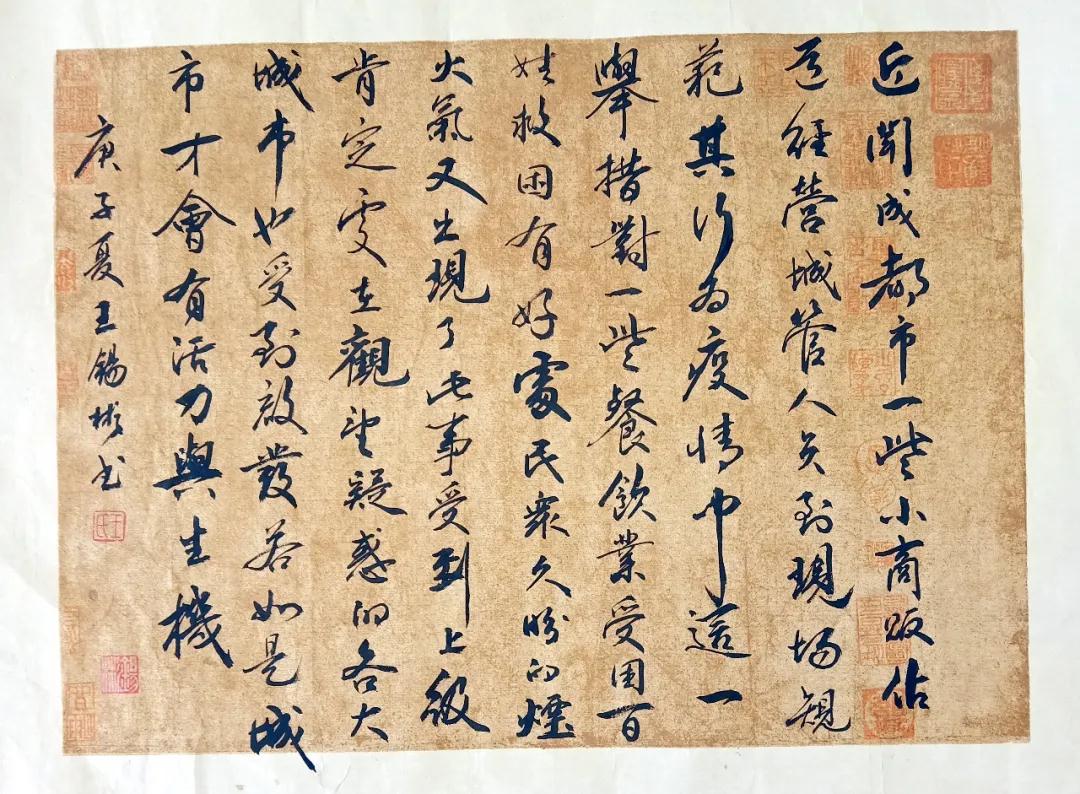 近聞成都市一些小商販佔
道經營城管人员到現場規
範其行为疫情中這一
舉措對一些餐飲業受困百
姓救困有好處民衆久盼的煙
火氣又出現了此事受到上級
肯定受在觀望疑惑的各大
城市也受到啟發若如是城
市才會有活力與生機
庚子夏王錫彬书